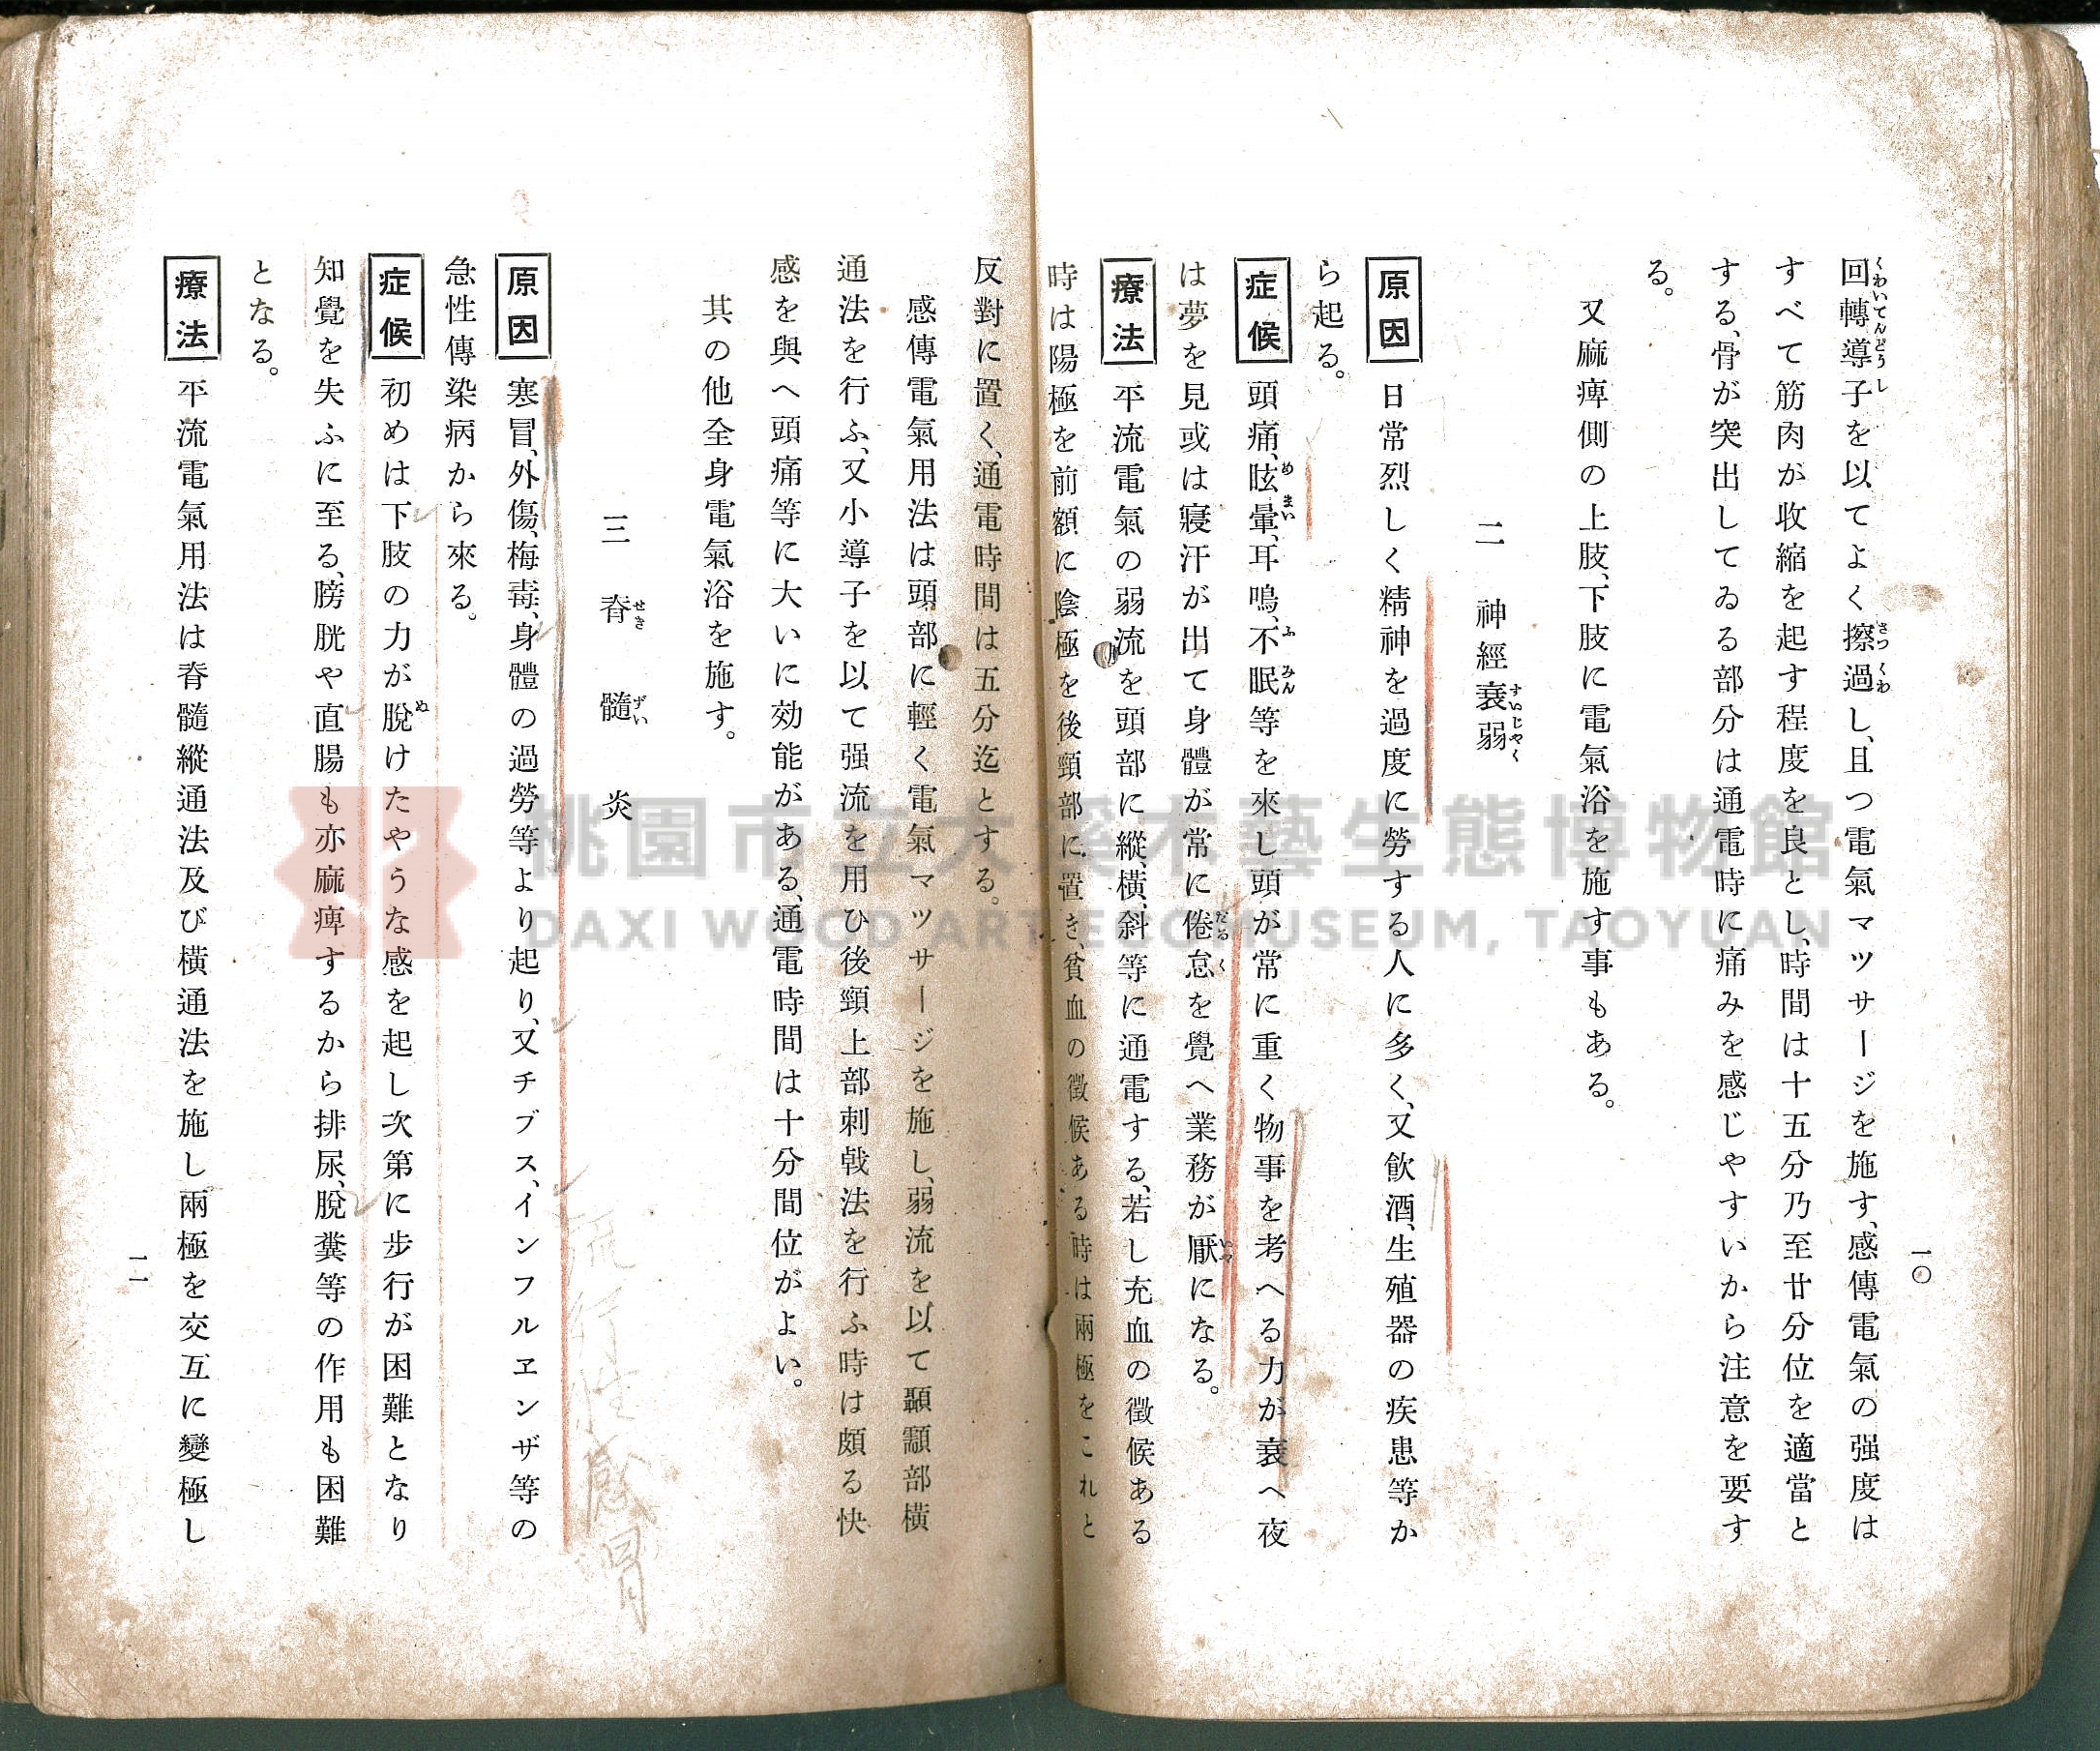 一〇
回轉導子を以てよく擦過し、且つ電氣マツサージを施す、感傳電氣の强度は
すべて筋肉が收縮を起す程度を良とし、時間は十五分乃至廿分位を適當と
する、骨が突出してゐる部分は通電時に痛みを感じやすいから注意を要す
る。
又麻痺側の上肢、下肢に電氣浴を施す事もある。
二 神經衰弱
原因 日常烈しく精神を過度に勞する人に多く、又飮酒、生殖器の疾患等か
ら起る。
症候 頭痛、眩暈、耳鳴、不眠等を來し頭が常に重く物事を考へる力が衰へ夜
は夢を見或は寢汗が出て身體が常に倦怠を覺へ業務が厭になる。
療法 平流電氣の弱流を頭部に縱、橫、斜等に通電する、若し充血の徵候ある
時は陽極を前額に陰極を後頸部に置き、貧血の徵候ある時は兩極をこれと
反對に置く、通電時間は五分迄とする。
感傳電氣用法は頭部に輕く電氣マツサージを施し、弱流を以て顳顬部橫
通法を行ふ、又小導子を以て强流を用ひ後頸上部刺戟法を行ふ時は頗る快
感を與へ頭痛等に大いに効能がある、通電時間は十分間位がよい。
其の他全身電氣浴を施す。
三 脊髓炎
原因 寒冒、外傷、梅毒、身體の過勞等より起り、又チブス、インフルヱンザ等の
急性傳染病から來る。
症候 初めは下肢の力が脫けたやうな感を起し次第に步行が困難となり
知覺を失ふに至る、膀胱や直腸も亦麻痺するから排尿、脫糞等の作用も困難
となる。
療法 平流電氣用法は脊髓縱通法及び橫通法を施し兩極を交互に變極し
一一
流行性感冒
桃園市立大溪木藝生態博物館
DAXI WOOD ART ECOMUSEUM, TAOYUAN